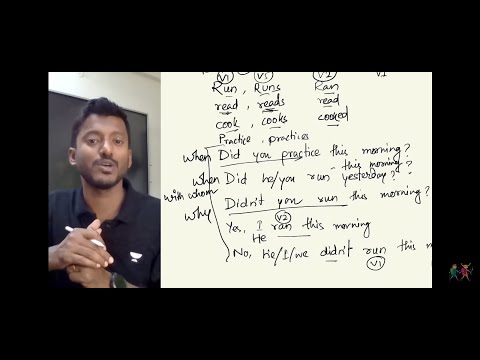 V1 V5 V2 V1
Run, Runs Ran
read, reads read
cook, cooks cooked
Practice, practices
when Did you practice this morning?
- this morning?
when Did he/you run yesterday?
with whom
Didn't you run this morning?
why
V2
Yes, I ran this morning
He
No, he/I/we didn't run this m
V1